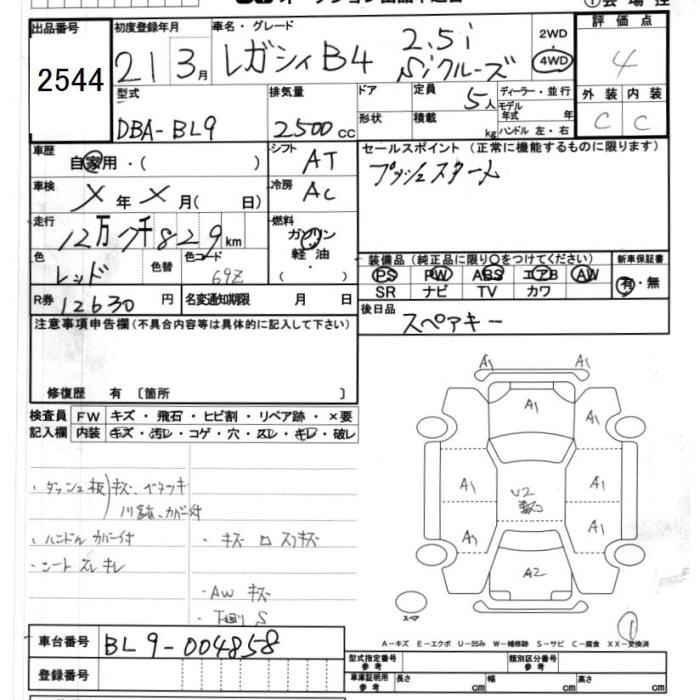 出品番号
2544
初度登録年月
21 3月
車名・グレード
レガシィB4 2.5i
Siクルーズ
2WD
4WD
評価点
4
外装 内装
C C
型式
DBA-BL9
排気量
2500cc
ドア
形状
定員
5人
積載
kg
ディーラー・並行
モデル
年式 年
ハンドル 左・右
車歴
自家用・( )
シフト
AT
車検
X年X月( 日)
冷房
AC
走行
12万7千829km
燃料
ガソリン
軽油・
( )
色
レッド
色替
色コード
69Z
R券
12630円
名変通知期限 月 日
セールスポイント (正常に機能するものに限ります)
プッシュスタート
装備品 (純正品に限り○をつけてください)
PS PW ABS エアB AW
SR ナビ TV カワ
新車保証書
有・無
後日品
スペアキー
注意事項申告欄 (不具合内容等は具体的に記入して下さい)
修復歴 有 〔箇所 〕
検査員
記入欄
FW キズ・飛石・ヒビ割・リペア跡・×要
内装 キズ・汚レ・コゲ・穴・スレ・キレ・破レ
・ダッシュ板) キズ、ベタツキ
・ハンドル カバー付
・シート スレ キレ
・キズ ロ スリキズ
・AW キズ
・下廻り S
A1 A1
A1
A1 A1
A1 A1
A1 A1
U2
A2
スペア
1
A-キズ E-エクボ U-凹み W-補修跡 S-サビ C-腐食 XX-交換済
車台番号
BL9-004858
登録番号
型式指定番号
参考
類別区分番号
参考
車庫証明用
参考
長さ cm
幅 cm
高さ cm